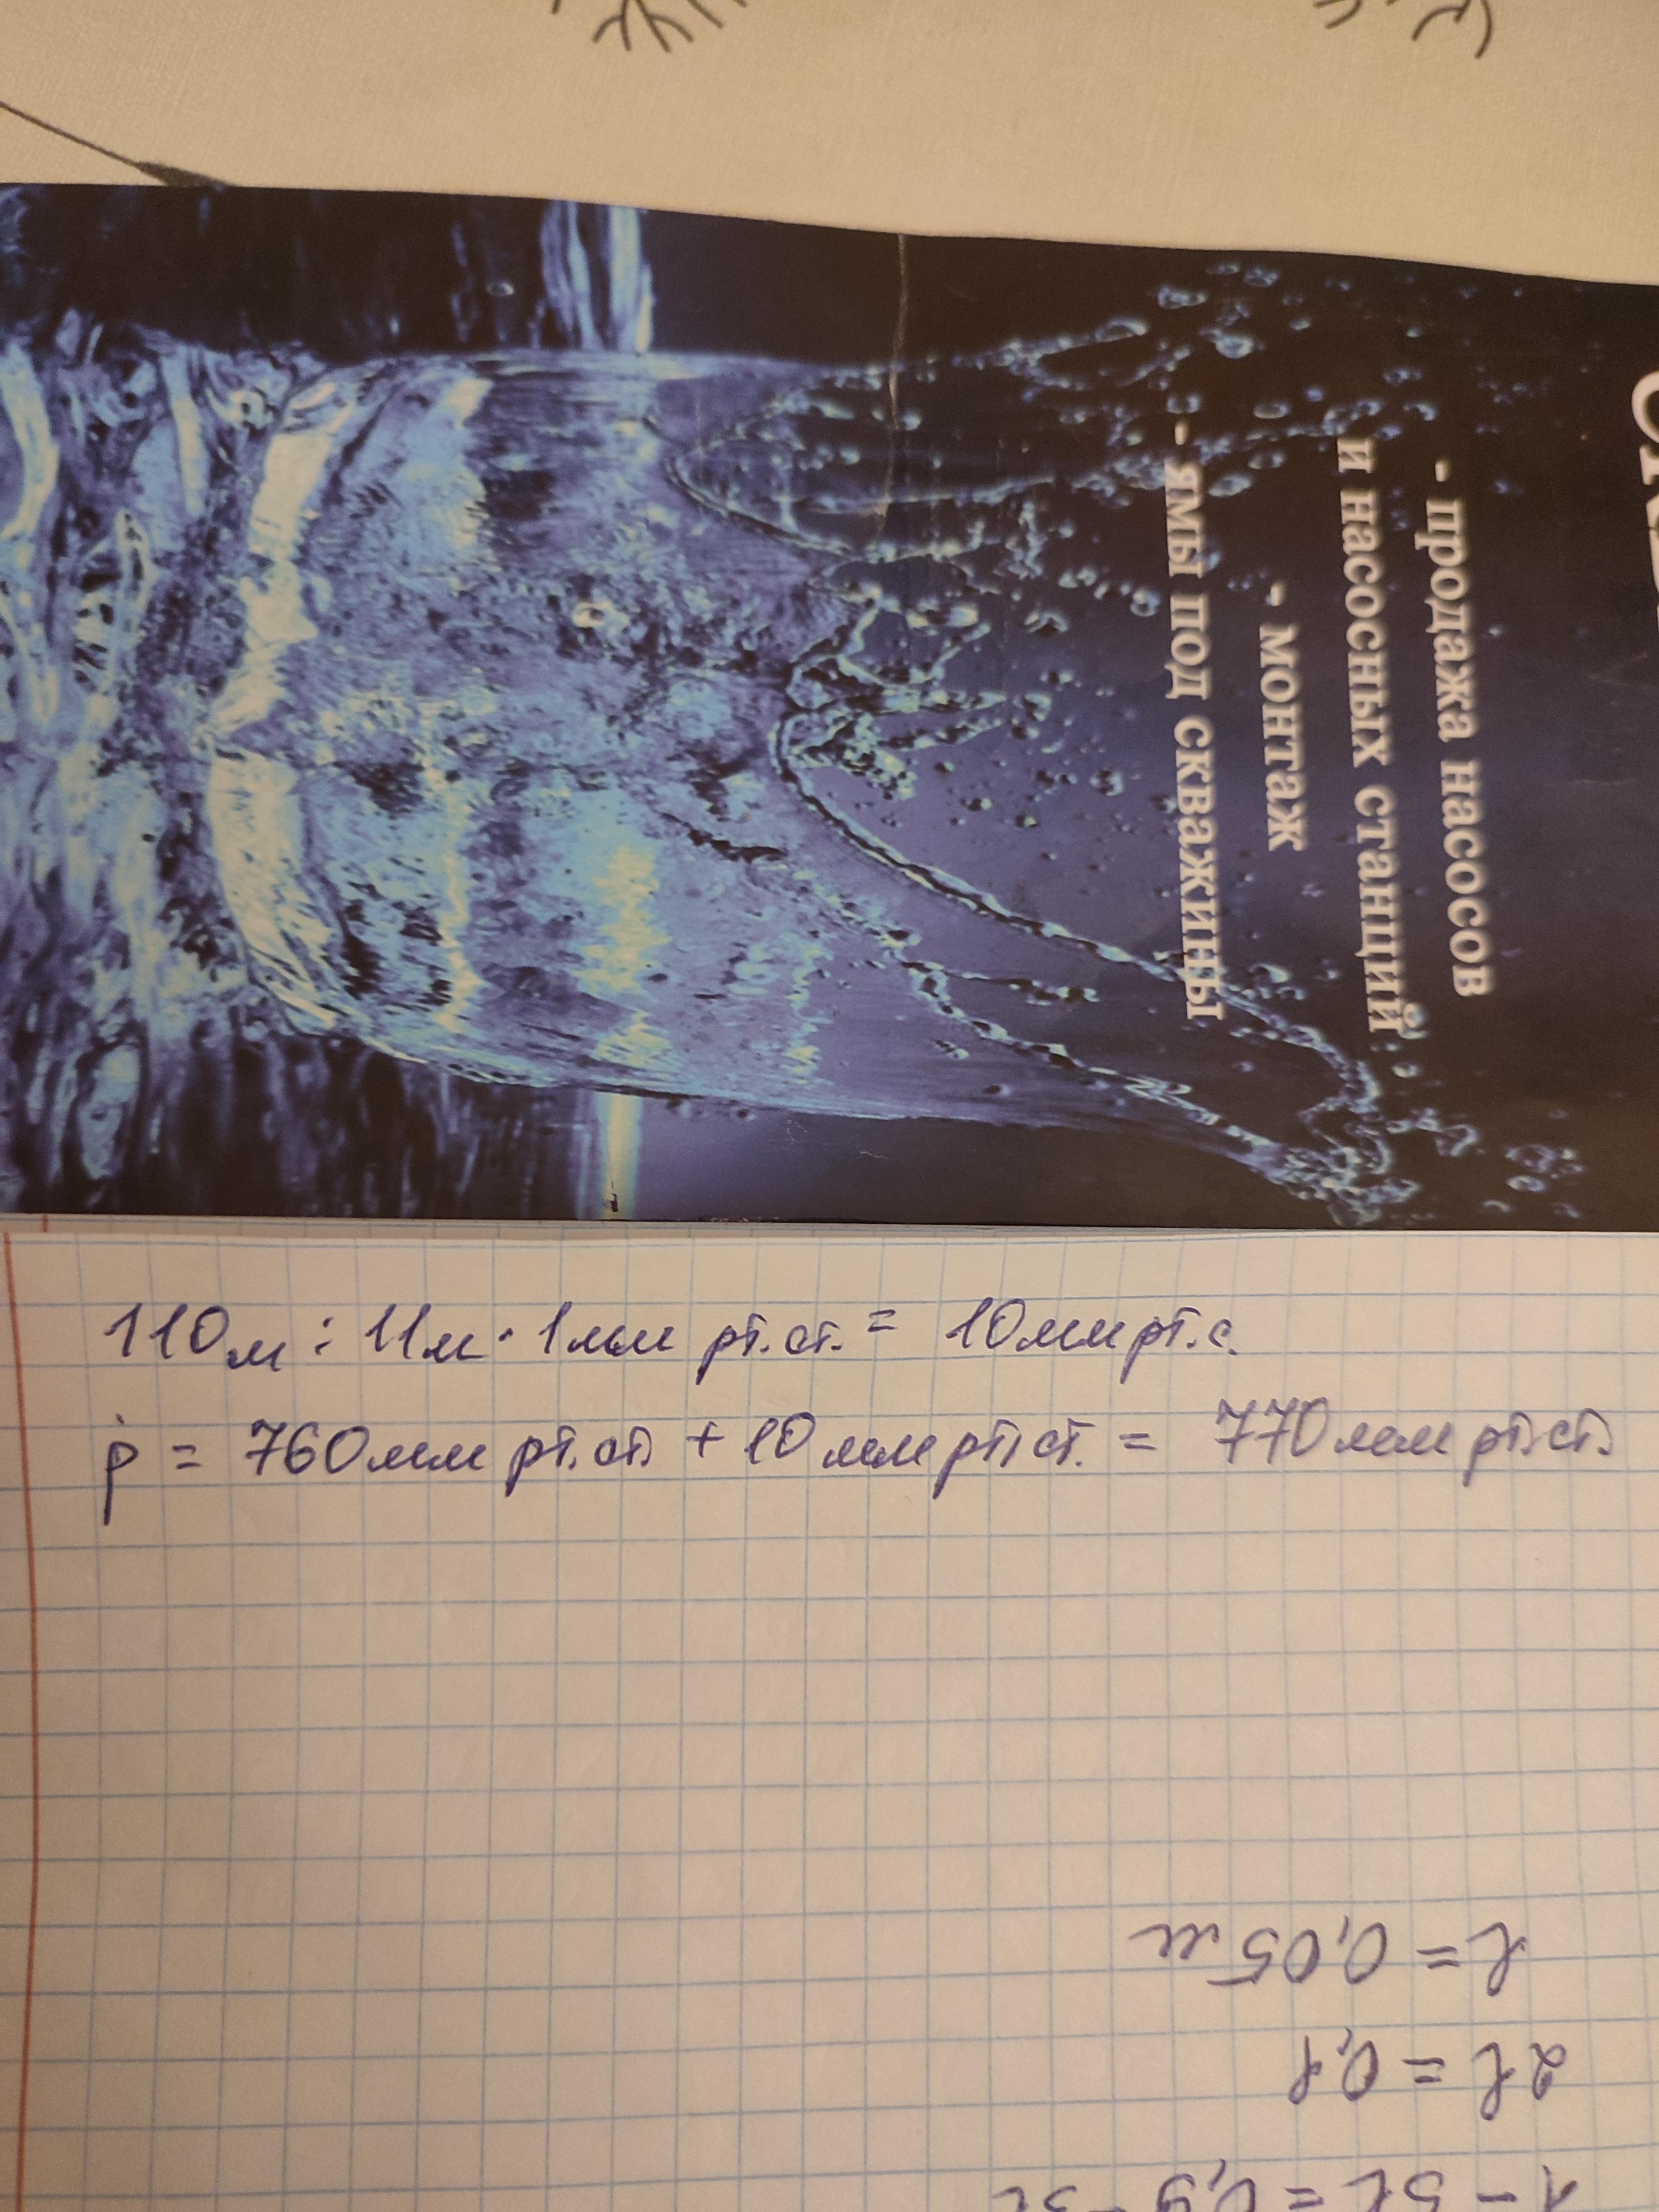 - продажа насосов
и насосных станций
- монтаж
- ямы под скважины
110м : 11м · 1мм рт.ст. = 10мм рт.с.
p = 760мм рт.ст. + 10мм рт.ст. = 770мм рт.ст.
l = 0,05 м
2l = 0,1
1 - 5l = 0,9 - 3l